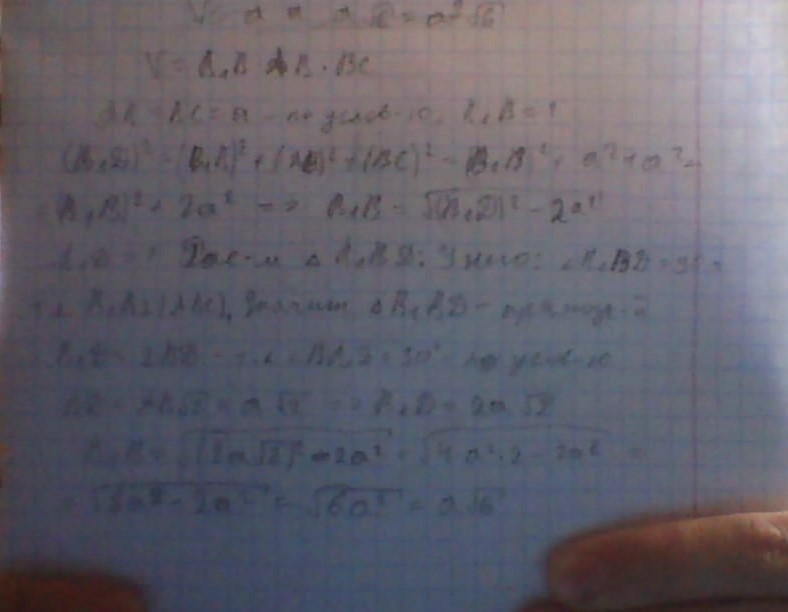 V = a · a · a√6 = a³√6
V = B₁B · AB · BC
AB = BC = a - по услов-ю, B₁B = ?
(B₁D)² = (B₁B)² + (AB)² + (BC)² = (B₁B)² + a² + a² =
= (B₁B)² + 2a² => B₁B = √(B₁D)² - 2a²
B₁D = ? Рас-м △ B₁BD: У него: ∠B₁BD = 90°
т.к B₁B⊥(ABC), значит △B₁BD - прямоуг-й
B₁D = 2BD - т.к ∠BB₁D = 30° по услов-ю
BD = AB√2 = a√2 => B₁D = 2a√2
B₁B = √(2a√2)² - 2a² = √4a²·2 - 2a² =
= √8a² - 2a² = √6a² = a√6